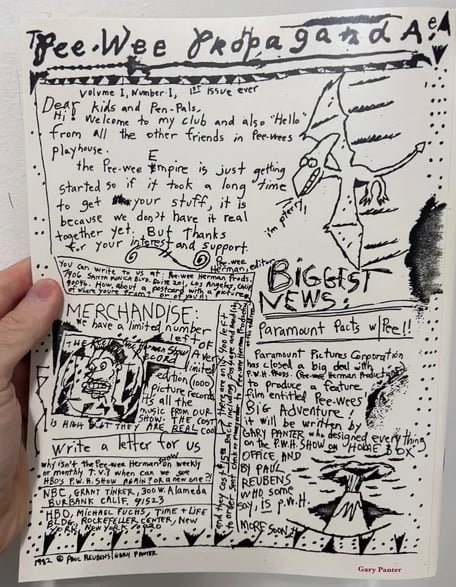 The Pee-Wee Propaganda
Volume I, Number I, 1ST ISSUE ever
Dear kids and Pen-Pals,
Hi! Welcome to my club and also "Hello"
from all the other friends in Pee-wees
playhouse.
the Pee-wee Empire is just getting
started so if it took a long time
to get your stuff, it is
because we don't have it real
together yet. But Thanks
for your interest and support.
Pee-wee
Herman, editor
i'm pterri!
You can write to us at: Pee-wee Herman Prods.
7906 Santa Monica Blvd, Suite 201, Los Angeles, Calif
90046. How about a postcard with a picture
of where you're from? or of you!!
MERCHANDISE:
we have a limited number
left of
A very
limited
edition (1000)
Picture Record
its all the
music from our
show. The cost
is HIGH but they are REAL cool
THE PEE-WEE Herman Show
and they cost
write a letter for us
why isn't the Pee-wee Herman show on weekly
or monthly T.V.? when can we see
HBO's P.W.H. Show again? or a new one?!
NBC, GRANT TINKER, 300 W. Alameda
BURBANK CALIF. 91523
HBO, MICHAEL FUCHS, TIME + LIFE
BLDG, ROCKEFELLER CENTER, NEW
YORK, NEW YORK
1982 © PAUL REUBENS/GARY PANTER
BIGGEST
NEWS:
Paramount Pacts w/ Pee!!
Paramount Pictures Corporation
has closed a big deal with
P.W.H. Prods. (Pee-wee Herman Productions)
to produce a feature
film entitled Pee-wees
BIG Adventure!
it will be written by
GARY PANTER who designed everything
on the P.W.H. SHOW on HOME BOX
OFFICE AND
BY PAUL
REUBENS
WHO some
say is P.W.H.
MORE SOON
Gary Panter